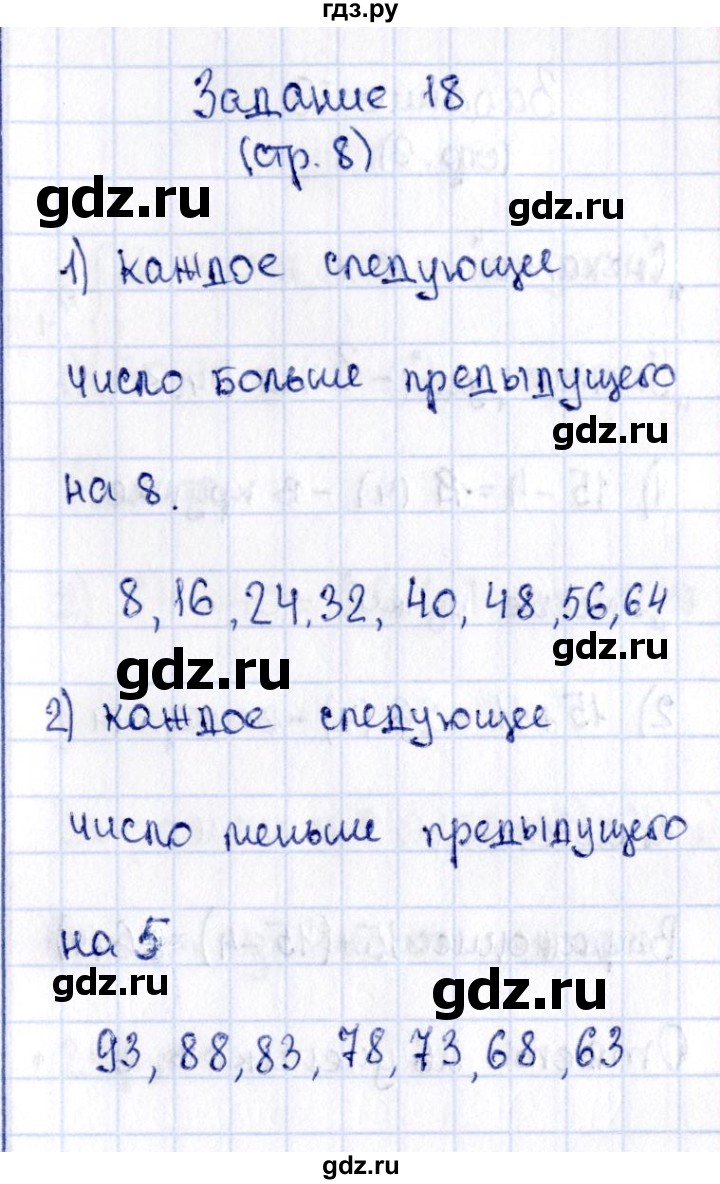 гдз.ру
Задание 18
(стр. 8)
gdz.ru
gdz.ru
1) каждое следующее
число больше предыдущего
gdz.ru
на 8.
8, 16, 24, 32, 40, 48, 56, 64
gdz.ru
gdz.ru
2) каждое следующее
число меньше предыдущего
на 5
gdz.ru
gdz.ru
93, 88, 83, 78, 73, 68, 63
gdz.ru